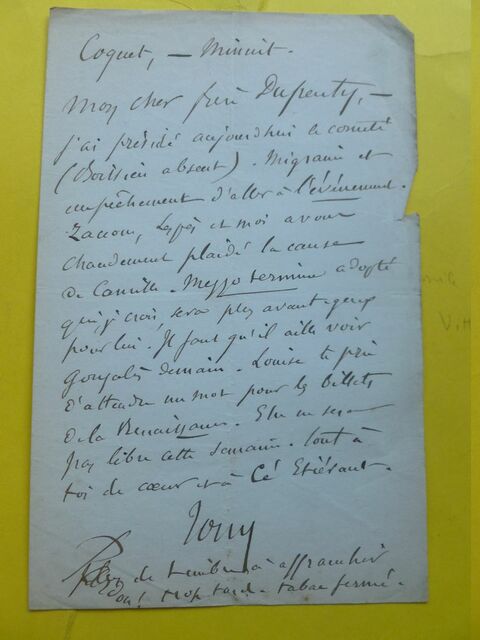 Coquet, — Minuit.
Mon cher frère Dupeuty, —
j'ai présidé aujourd'hui le comité
(Boissieu absent). Migraine et
empêchement d'aller à l'événement.
Zaccone, et moi avons
chaudement plaidé la cause
de Camille. Mezzo termine adopté
qui, je crois, sera plus avantageux
pour lui. Il faut qu'il aille voir
Gonzalès demain. Louise te prie
d'attendre un mot pour les billets
de la Renaissance. Elle ne sera
pas libre cette semaine. Tout à
toi de cœur et à
Tony
de timbre à affranchir
trop tard - tabac fermé.